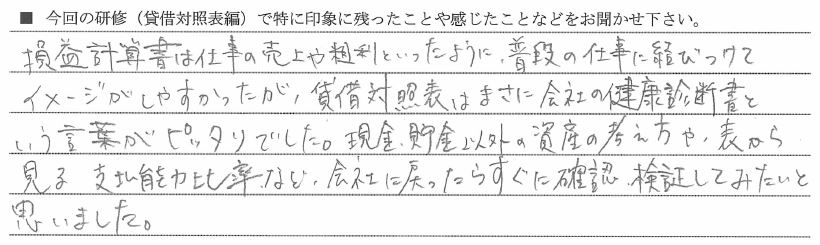 ■ 今回の研修（貸借対照表編）で特に印象に残ったことや感じたことなどをお聞かせ下さい。
損益計算書は仕事の売上や粗利といったように、普段の仕事に結びつけて
イメージがしやすかったが、貸借対照表はまさに会社の健康診断書と
いう言葉がピッタリでした。現金、貯金以外の資産の考え方や、表から
見る 支払能力比率など、会社に戻ったらすぐに確認、検証してみたいと
思いました。